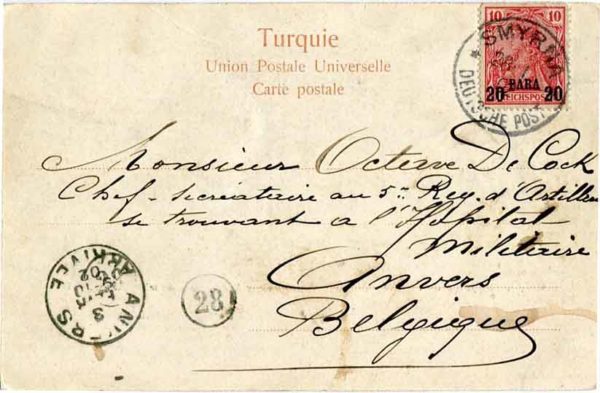 Turquie
Union Postale Universelle
Carte postale
10 10
20 PARA 20
REICHSPOST
SMYRNA
DEUTSCHE POST
Monsieur Octave De Cock
Chef-secrétaire au 5me Reg. d'Artillerie
se trouvant a l'Hopital
Militaire
Anvers
Belgique
ANVERS
ARRIVÉE
28